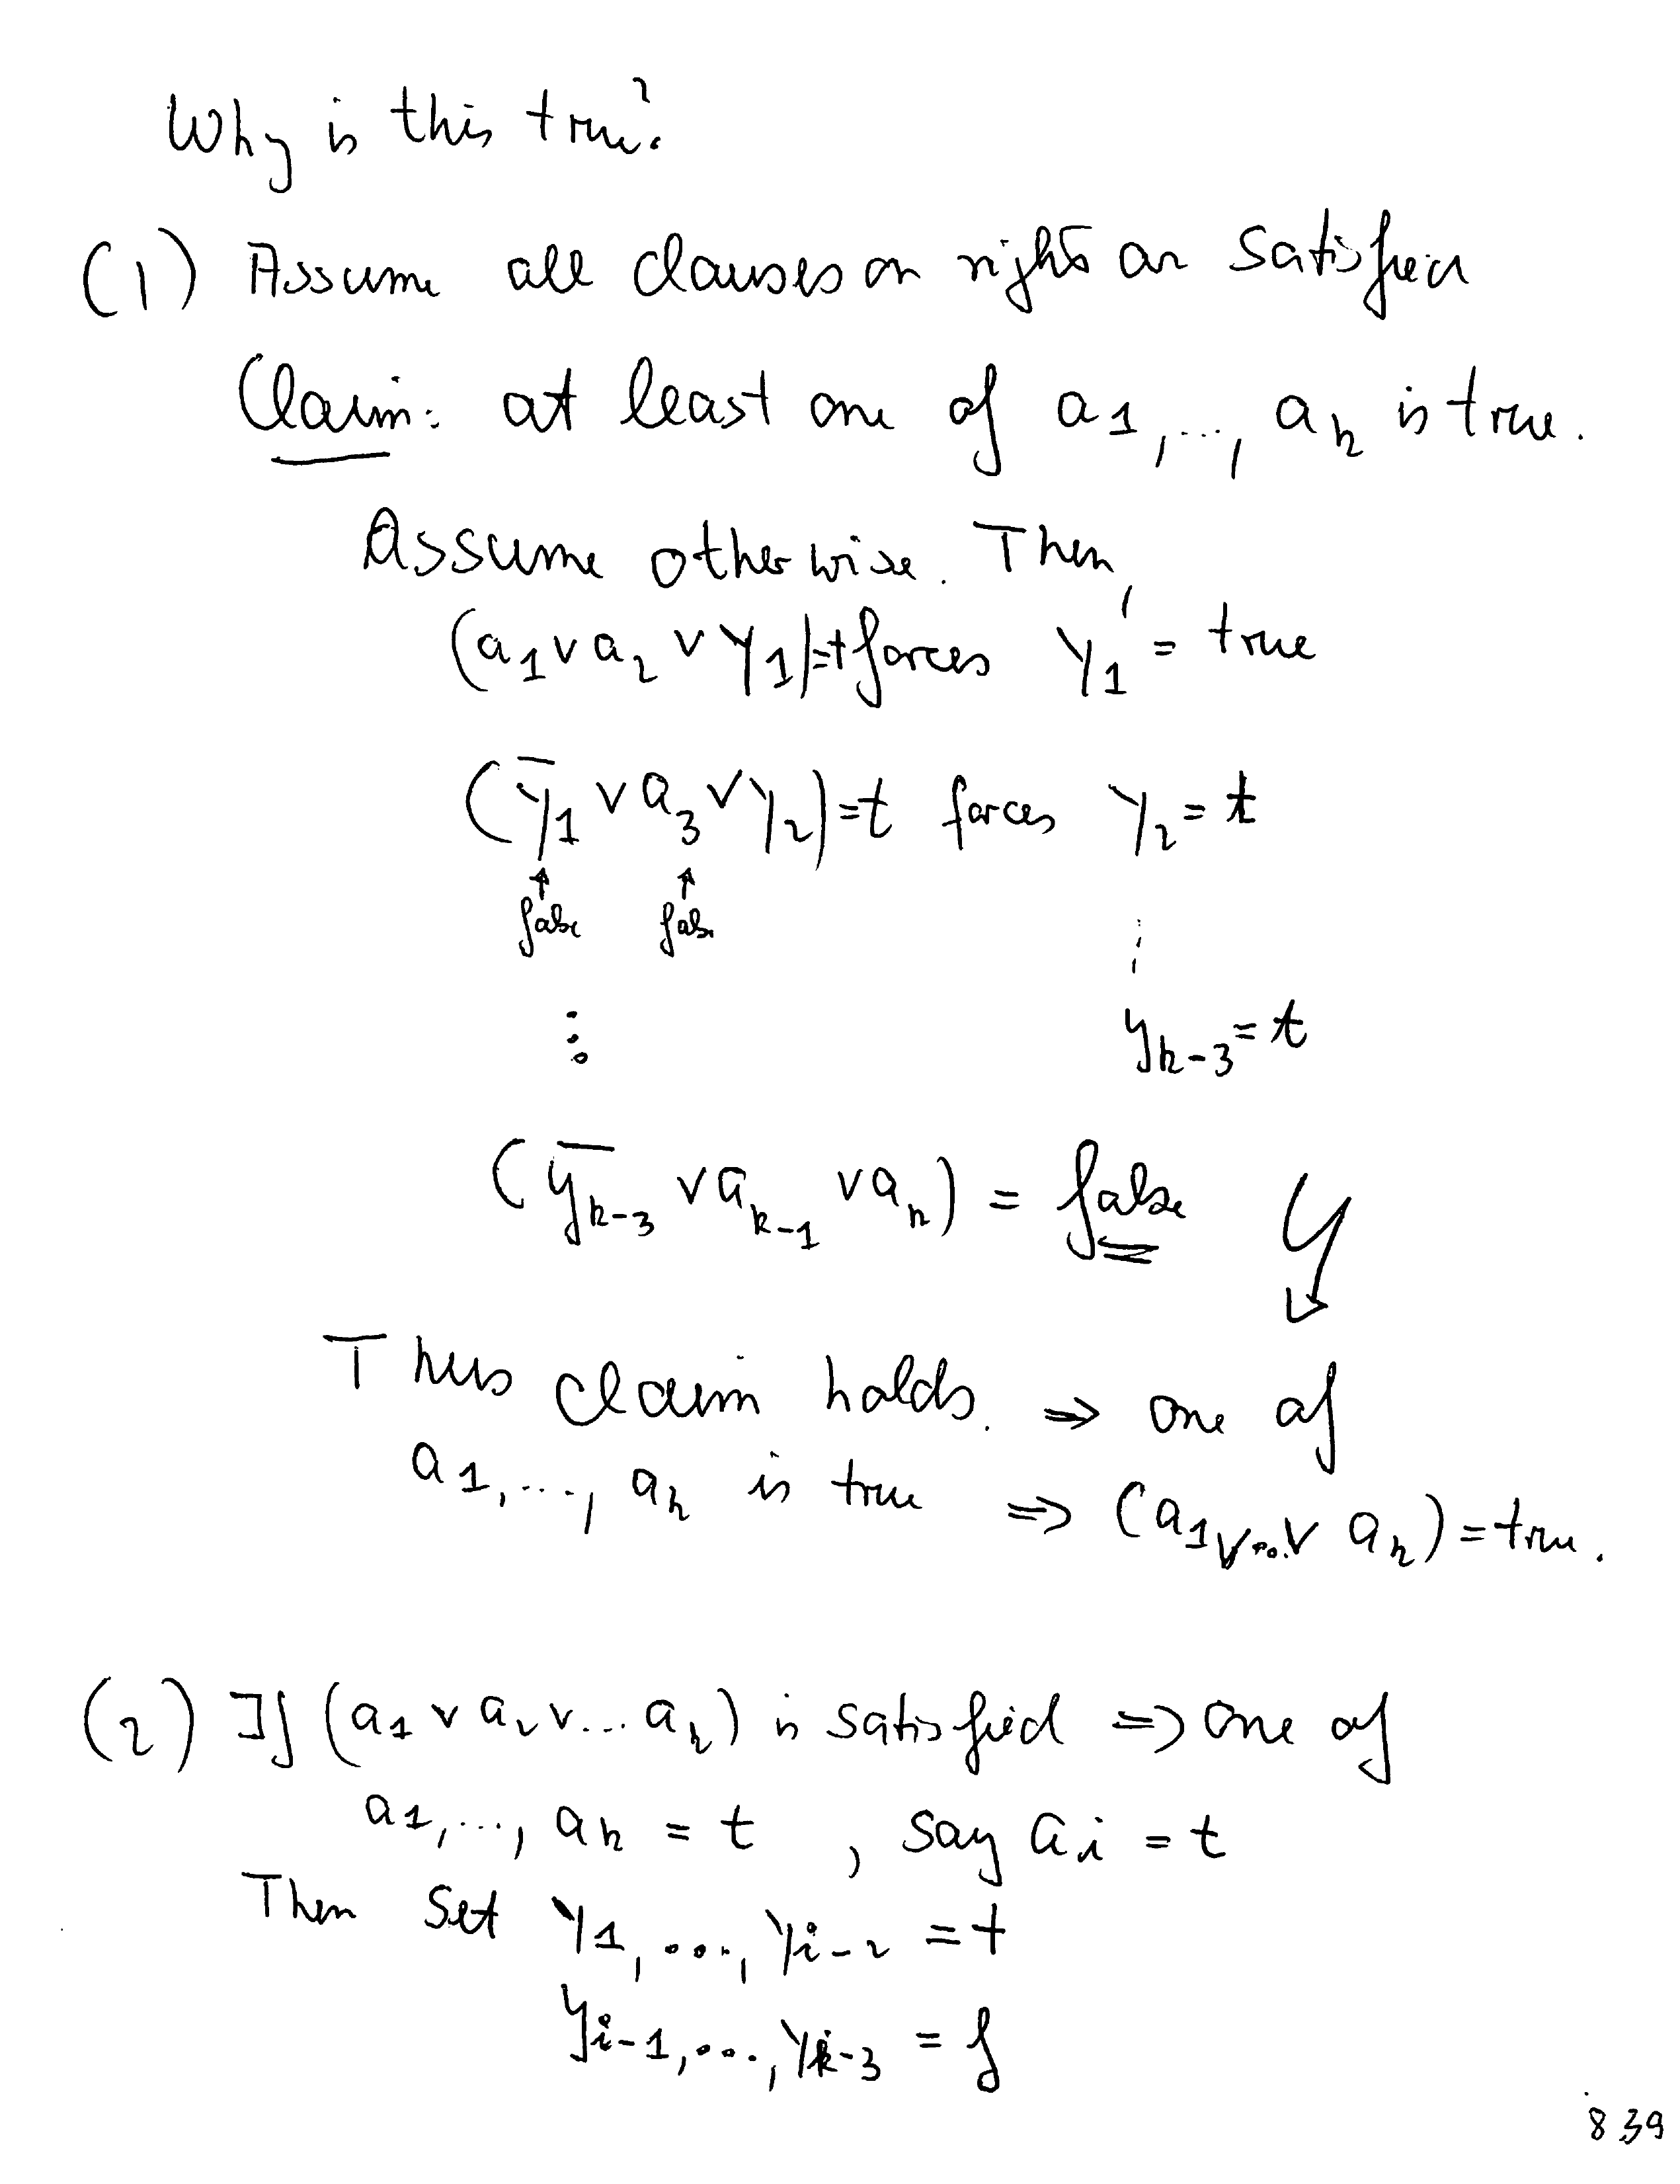 Why is this true?
(1) Assume all clauses on right are satisfied
Claim: at least one of a₁,..., aₖ is true.
Assume otherwise. Then,
(a₁ ∨ a₂ ∨ y₁)=t forces y₁ = true
(ȳ₁ ∨ a₃ ∨ y₂)=t forces y₂ = t
↑ ↑
false false
⋮
⋮ yₖ₋₃ = t
(ȳₖ₋₃ ∨ aₖ₋₁ ∨ aₖ) = false ↯
Thus claim holds. ⇒ one of
a₁,..., aₖ is true ⇒ (a₁ ∨...∨ aₖ) = true.
(2) If (a₁ ∨ a₂ ∨... aₖ) is satisfied ⇒ one of
a₁,..., aₖ = t , say aᵢ = t
Then set y₁,..., yᵢ₋₂ = t
yᵢ₋₁,..., yₖ₋₃ = f
839